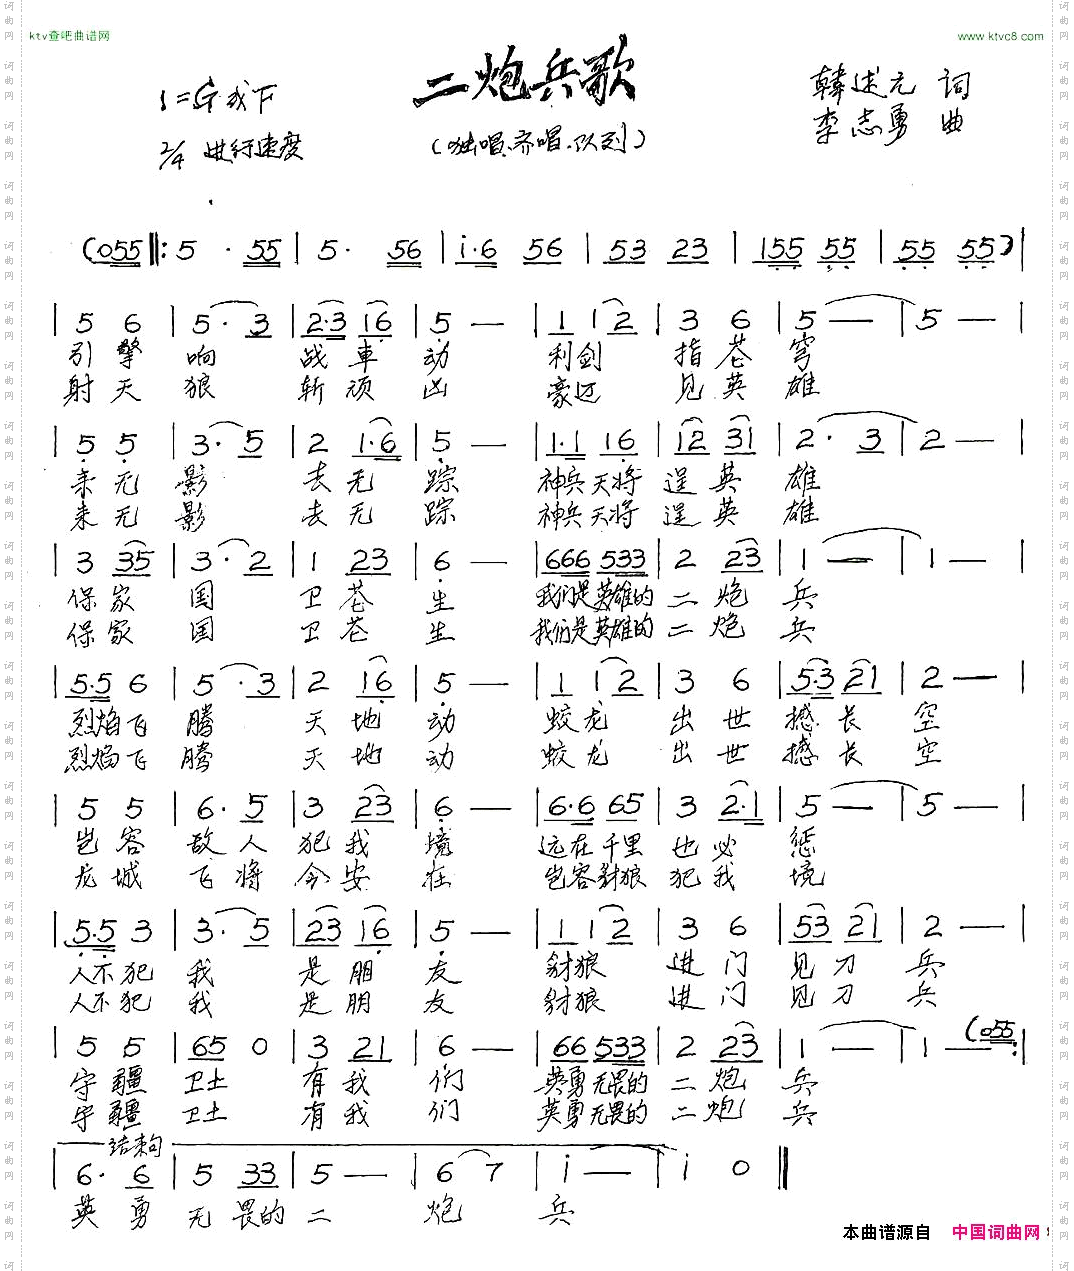 ktv查吧曲谱网
www.ktvc8.com
二炮兵歌
1=G或F
韩述元 词
2/4 进行速度
(独唱、齐唱、队列)
李志勇 曲
(055 ‖: 5 · 55 | 5 · 56 | i·6 56 | 53 23 | 155 55 | 55 55 ) |
| 5 6 | 5 · 3 | 2·3 16 | 5 — | 1 12 | 3 6 | 5 — | 5 — |
引擎 响 战車 动 利剑 指苍 穹
射天 狼 斩顽 凶 豪迈 见英 雄
| 5 5 | 3 · 5 | 2 1·6 | 5 — | 1·1 16 | 12 31 | 2 · 3 | 2 — |
来无 影 去无 踪 神兵天将 逞英 雄
来无 影 去无 踪 神兵天将 逞英 雄
| 3 35 | 3 · 2 | 1 23 | 6 — | 666 533 | 2 23 | 1 — | 1 — |
保家 国 卫苍 生 我们是英雄的 二炮 兵
保家 国 卫苍 生 我们是英雄的 二炮 兵
| 5·5 6 | 5 · 3 | 2 16 | 5 — | 1 12 | 3 6 | 5·3 21 | 2 — |
烈焰飞 腾 天地 动 蛟龙 出世 撼长 空
烈焰飞 腾 天地 动 蛟龙 出世 撼长 空
| 5 5 | 6 · 5 | 3 23 | 6 — | 6·6 65 | 3 2·1 | 5 — | 5 — |
岂容 敌人 犯我 境 远在千里 也必 惩
龙城 飞将 今安 在 岂容豺狼 犯我 境
| 5·5 3 | 3 · 5 | 23 16 | 5 — | 1 12 | 3 6 | 53 21 | 2 — |
人不犯 我 是朋 友 豺狼 进门 见刀 兵
人不犯 我 是朋 友 豺狼 进门 见刀 兵
| 5 5 | 65 0 | 3 21 | 6 — | 66 533 | 2 23 | 1 — | 1 — (055 :|
守疆 卫土 有我 们 英勇无畏的 二炮 兵
守疆 卫土 有我 们 英勇无畏的 二炮 兵
结束句
| 6 · 6 | 5 33 | 5 — | 6 7 | i — | i 0 ‖
英勇 无畏的 二 炮 兵
本曲谱源自 中国词曲网